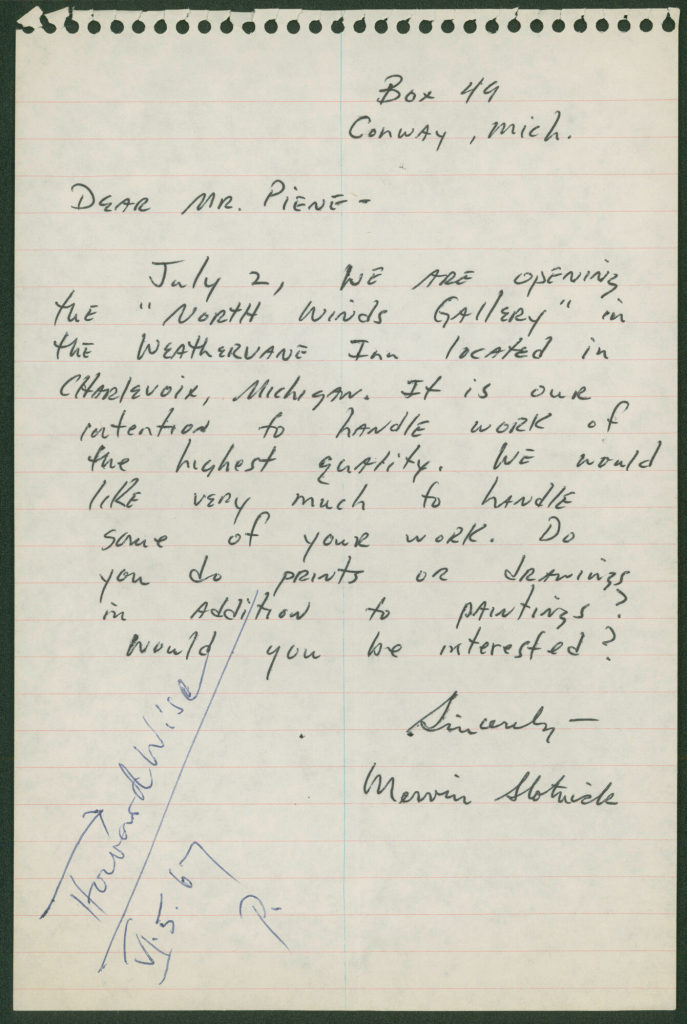 Box 49
Conway, Mich.
Dear Mr. Piene -
July 2, we are opening
the "North Winds Gallery" in
the Weathervane Inn located in
Charlevoix, Michigan. It is our
intention to handle work of
the highest quality. We would
like very much to handle
some of your work. Do
you do prints or drawings
in addition to paintings?
Would you be interested?
Sincerely -
Mervin Slotnick
Howard Wise
VI. 5. 67
P.